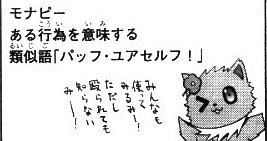 モナピー
ある行為を意味する
類似語「パッフ・ユアセルフ！」
みんなも
使って
みるみー！
ただし
殴られても
知らない
みー！